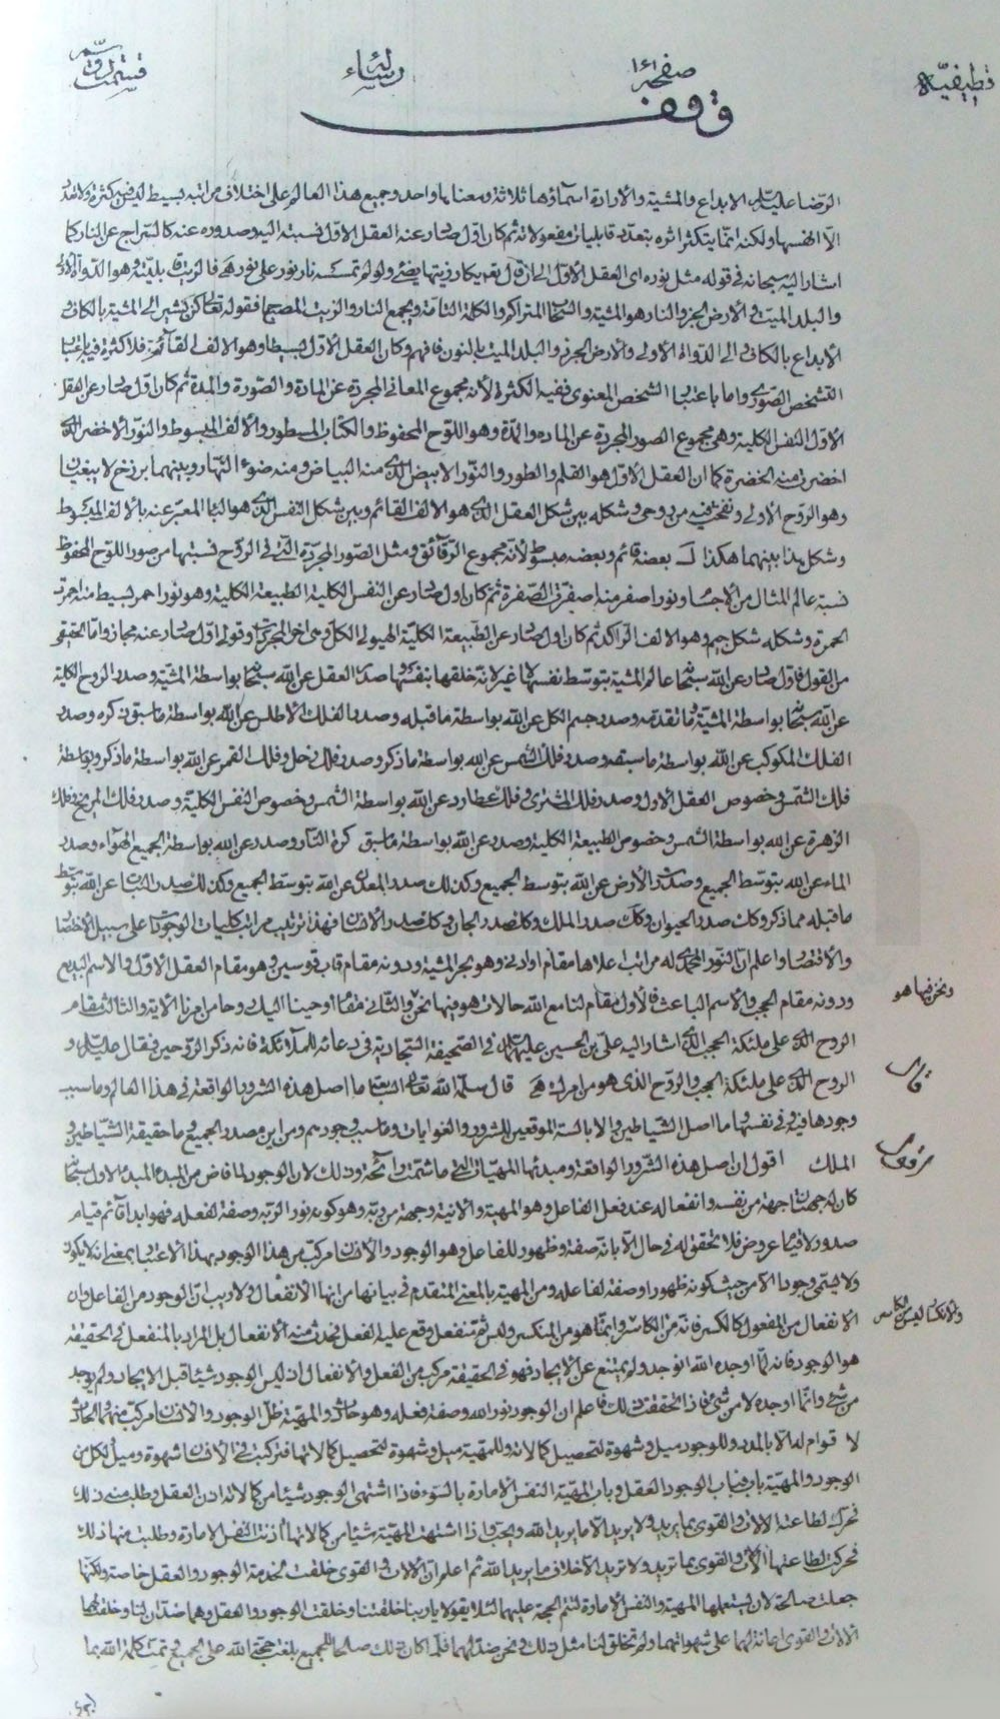 قطيفيّة صفحه ١٤١ رسالة قسمت
وقف
الرضا عليه السلام الابداع والمشية والارادة اسماؤها ثلاثة ومعناها واحد وجميع هذا العالم على اختلاف مراتبه بسيط ليس فيه كثرة ولا تعدد
الا انفسها ولكنه انما يتكثر اثره بتعدد قابليات مفعولاته ثم كان اول صادر عنه العقل الاول نسبته اليه وصدوره عنه كالسراج عن النار كما
اشار اليه سبحانه في قوله مثل نوره اى العقل الاول الى ان قال تعالى يكاد زيتها يضئ ولو لم تمسسه نار نور على نور فالزيت قابليته وهو الدواة الاولى
والبلد الميت والارض الجرز والنار هو المشية والسحاب المتراكم والكلمة التامة ويجمع النار والزيت المصباح فقوله تعالى كن يشير الى المشية بالكاف و
الابداع بالكاف والى الدواة الاولى والارض الجرز والبلد الميت بالنون فافهم وكان العقل الاول بسيطا وهو الالف القائم فلا كثرة فيه باعتبار
التشخص الصورى واما باعتبار الشخص المعنوى ففيه الكثرة لانه مجموع المعاني المجردة عن المادة والصورة والمدة ثم كان اول صادر عن العقل
الاول النفس الكلية وهى مجموع الصور المجردة عن المادة والمدة وهو اللوح المحفوظ والكتاب المسطور والالف المبسوط والنور الاخضر الذى
اخضرت منه الخضرة كما ان العقل الاول هو القلم والطور والنور الابيض الذى منه البياض ومنه ضوء النهار وبينهما برزخ لا يبغيان
وهو الروح الاولى ونفخت فيه من روحى وشكله بين شكل العقل الذى هو الالف القائم وبين شكل النفس الذى هو الباء المعبر عنه بالالف المبسوط
وشكل هذا بينهما هكذا بعضه قائم وبعضه مبسوط لانه مجموع الرقائق ومثل الصور المجردة التى في الروح نسبتها من صور اللوح المحفوظ
نسبة عالم المثال من الاجسام ونور اصفر منه اصفرت الصفرة ثم كان اول صادر عن النفس الكلية الطبيعة الكلية وهو نور احمر بسيط منه احمرت
الحمرة وشكله شكل جيم وهو الالف الراكد ثم كان اول صادر عن الطبيعة الكلية الهيولى الكل وهى اخر المجردات وقولى اول صادر عنه مجاز واما الحقيقى
من القول فاول صادر عن الله سبحانه عالم المشية بتوسط نفسها لا غير لانه خلقها بنفسها وصدر العقل عن الله سبحانه بواسطة المشية وصدر الروح الكلية
عن الله سبحانه بواسطة المشية وما تقدمه وصدر جسم الكل عن الله بواسطة ما قبله وصدر الفلك الاطلس عن الله بواسطة ما سبق ذكره وصدر
الفلك المكوكب عن الله بواسطة ما سبقه وصدر فلك الشمس عن الله بواسطة ما ذكر وصدر فلك زحل وفلك القمر عن الله بواسطة ما ذكر وبواسطة
فلك الشمس وخصوص العقل الاول وصدر فلك المشترى وفلك عطارد عن الله بواسطة الشمس وخصوص النفس الكلية وصدر فلك المريخ وفلك
الزهرة عن الله بواسطة الشمس وخصوص الطبيعة الكلية وصدر عن الله بواسطة ما سبق كرة النار وصدر عن الله بواسطة الجميع الهواء وصدر
الماء عن الله بتوسط الجميع وصدرت الارض عن الله بتوسط الجميع وكذلك صدر المعدن عن الله بتوسط الجميع وكذلك صدر النبات عن الله بتوسط
ما قبله مما ذكر وكذلك صدر الحيوان وكذلك صدر الملك وكذلك صدر الجان وكذلك صدر الانسان فهذا ترتيب مراتب كليات الوجودات على سبيل الاختصار
والاقتصار واعلم ان النور المحمدى له مراتب اعلاها مقام او ادنى وهو بحر المشية ودونه مقام قاب قوسين وهو مقام العقل الاول والاسم البديع
ودونه مقام الحجب والاسم الباعث فالاول مقام لنا مع الله حالات هو فيها نحن والثانى مقام اوحينا اليك روحا من امرنا الاية والثالث مقام
ونحن فيها هو
الروح الذى على ملئكة الحجب الذى اشار اليه على بن الحسين عليهما السلام في الصحيفة السجادية في دعائه للملائكة فانه ذكر الروحين فقال عليه السلام و
الروح الذى على ملئكة الحجب والروح الذى هو من امرك قال سلمه الله تعالى ما اصل هذه الشرور الواقعة في هذا العالم وما سبب
قال
وجودها فيه وفى نفسها وما اصل الشياطين والابالسة الموقعين للشرور والغوايات وما سبب وجودهم ومن اين مصدر الجميع وما حقيقة الشياطين و
الملك اقول ان اصل هذه الشرور الواقعة ومبدئها المهيات التى ما شمت رائحة وذلك لان الوجود لما فاض من المبدء الاول سبحانه
كان له جهتان جهة من نفسه وانفعاله عند فعل الفاعل وهو المهية والانية وجهة من ربه وهو كونه نور الرب وصفة لفعله فهو ابدا قائم قيام
صدور لا قيام عروض فلا تحقق له في حال الا بانه صفة وظهور للفاعل وهو الوجود والانسان مركب من هذا الوجود بهذا الاعتبار بمعنى انه لا يكون
ولا يسمى وجودا الا من حيث كونه ظهورا وصفة لفاعله ومن المهية بالمعنى المتقدم في بيانها من انها الانفعال ولا ريب ان الوجود من الفاعل وان
الانفعال من المفعول كالكسر فانه من الكاسر وانما هو من المنكسر وليس ثم منفعل وقع عليه الفعل فحدث منه الانفعال بل المراد بالمنفعل في الحقيقة
والانكسار ليس من الكاسر
هو الوجود فانه لما اوجده الله انوجد ولم يمتنع عن الايجاد فهو في الحقيقة مركب من الفعل والانفعال اذ ليس الوجود شيئا قبل الايجاد ولم يوجد
من شئ وانما اوجده لا من شئ فاذا تحققت ذلك فاعلم ان الوجود نور الله وصفة فعله وهو حادث والمهية ظل الوجود والانسان مركب منهما والحادث
لا قوام له الا بالمدد وللوجود ميل وشهوة لتحصيل كمالاته وللمهية ميل وشهوة لتحصيل كمالاتها فتركبت في الانسان شهوة وميل لكل من
الوجود والمهية باب فباب الوجود العقل وباب المهية النفس الامارة بالسوء فاذا اشتهى الوجود شيئا من كمالاته اذن العقل وطلب منه ذلك
فحرك لطاعته الالات والقوى بما يريد ولا يريد الا ما يريد الله ويحب واذا اشتهت المهية شيئا من كمالاتها اذنت النفس الامارة وطلبت منها ذلك
فحركت لطاعتها الالات والقوى بما تريد ولا تريد الا خلاف ما يريد الله ثم اعلم ان الالات والقوى خلقت لخدمة الوجود والعقل خاصة ولكنها
جعلت صالحة لان يستعملها المهية والنفس الامارة لتتم الحجة عليهما لئلا يقولا يا ربنا خلقتنا وخلقت الوجود والعقل وهما ضدان لنا وخلقت لهما
الالات والقوى اعانة لهما على شهواتهما ولم تخلق لنا مثل ذلك ونحن ضد لهما فلما كان ذلك صالحا للجميع بلغت حجة الله على الجميع وتمت كلمة الله بما